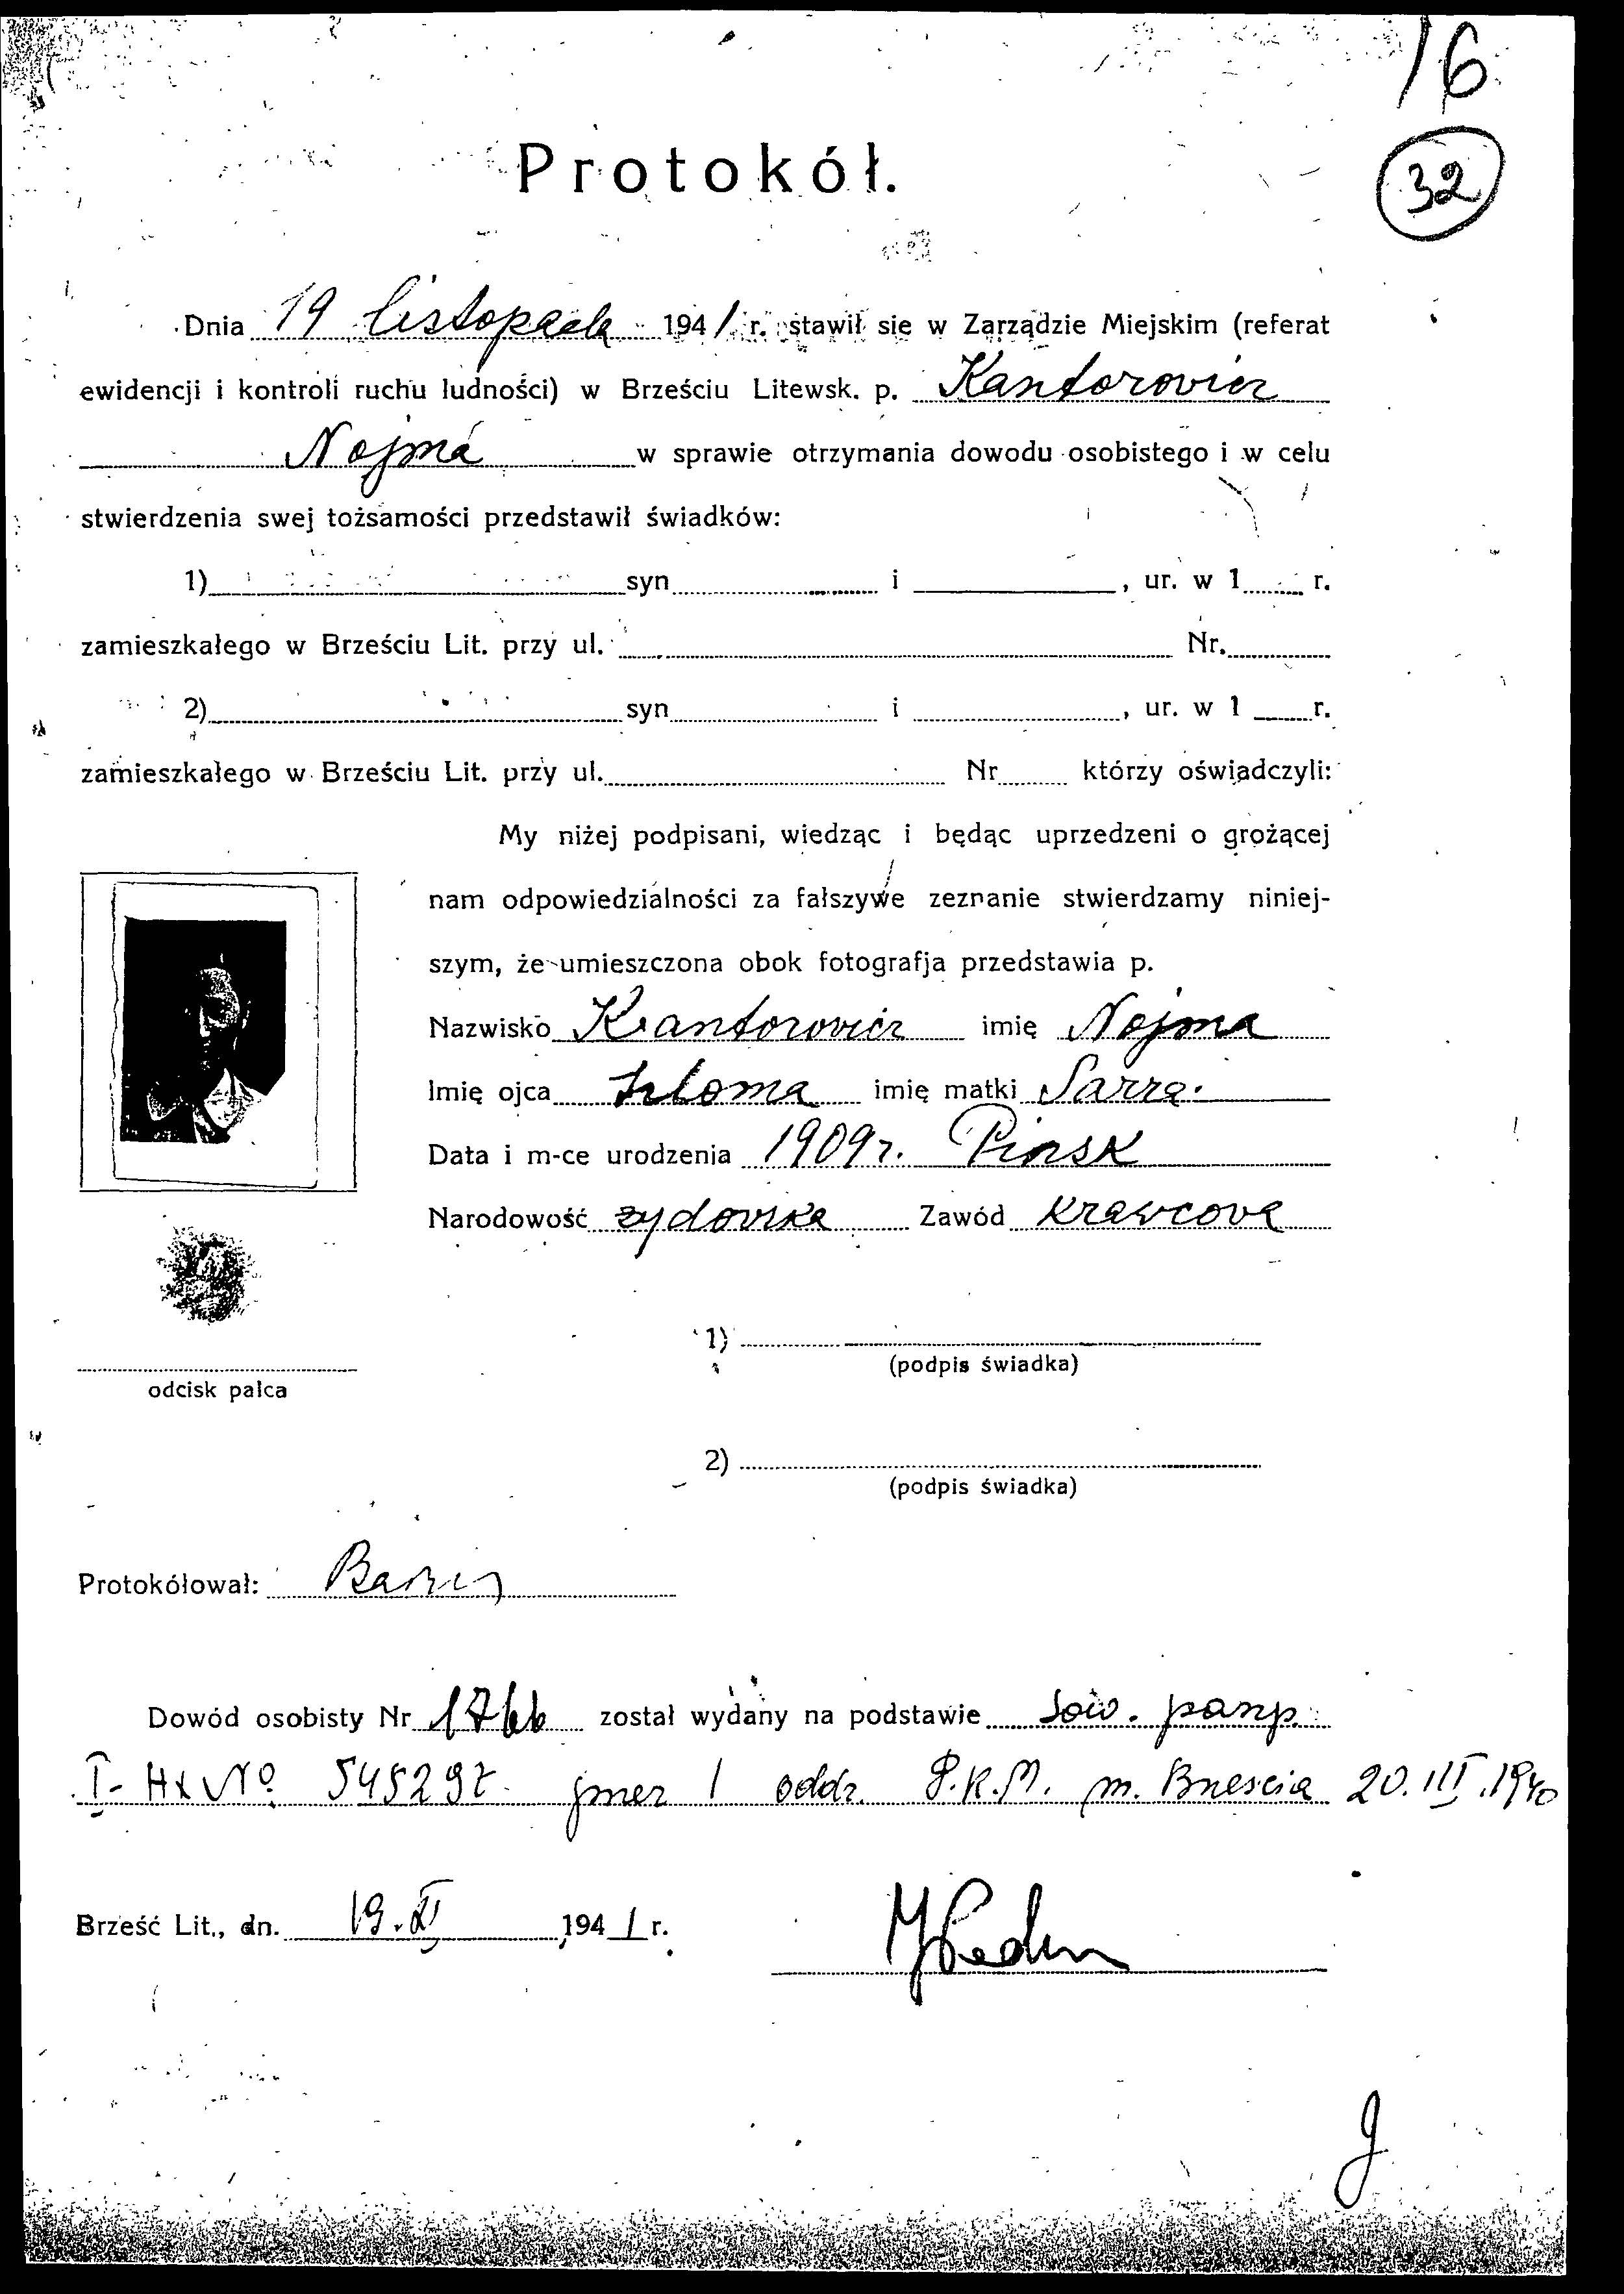 16
32
Protokół.
Dnia 19 listopada 1941 r. stawił się w Zarządzie Miejskim (referat
ewidencji i kontroli ruchu ludności) w Brześciu Litewsk. p. Kantorovicz
Nojma w sprawie otrzymania dowodu osobistego i w celu
stwierdzenia swej tożsamości przedstawił świadków:
1) syn i , ur. w 1 r.
zamieszkałego w Brześciu Lit. przy ul. Nr.
2) syn i , ur. w 1 r.
zamieszkałego w Brześciu Lit. przy ul. Nr którzy oświadczyli:
My niżej podpisani, wiedząc i będąc uprzedzeni o grożącej
nam odpowiedzialności za fałszywe zeznanie stwierdzamy niniej-
szym, że umieszczona obok fotografja przedstawia p.
Nazwisko Kantorovicz imię Nojma
Imię ojca Szloma imię matki Sarra.
Data i m-ce urodzenia 1909 r. Pinsk
Narodowość zydovska Zawód Kravcova
1)
(podpis świadka)
odcisk palca
2)
(podpis świadka)
Protokółował:
Dowód osobisty Nr 1766 został wydany na podstawie sow. paszp.
I-HX No 545297 przez 1 oddz. R.K.M. m. Brzescia 20.III.1940
Brześć Lit., dn. 19.XI 1941 r.